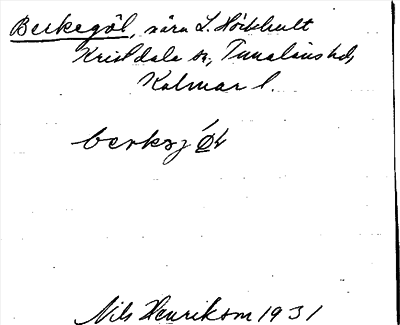 Berkegöl, våra L. Hökhult
Kristdala sn, Tunaläns hd,
Kalmar l.
berkəj
Nils Henriksson 1931